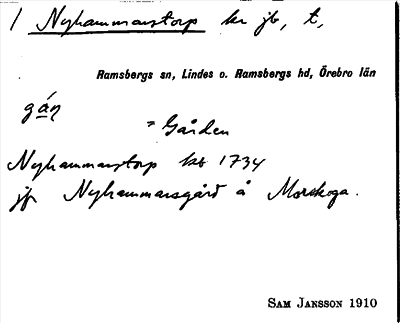 1 Nyhammarstorp kr jb, t,
Ramsbergs sn, Lindes o. Ramsbergs hd, Örebro län
gán
= Gården
Nyhammarstorp kb 1734
jfr Nyhammarsgård å Morskoga.
SAM JANSSON 1910